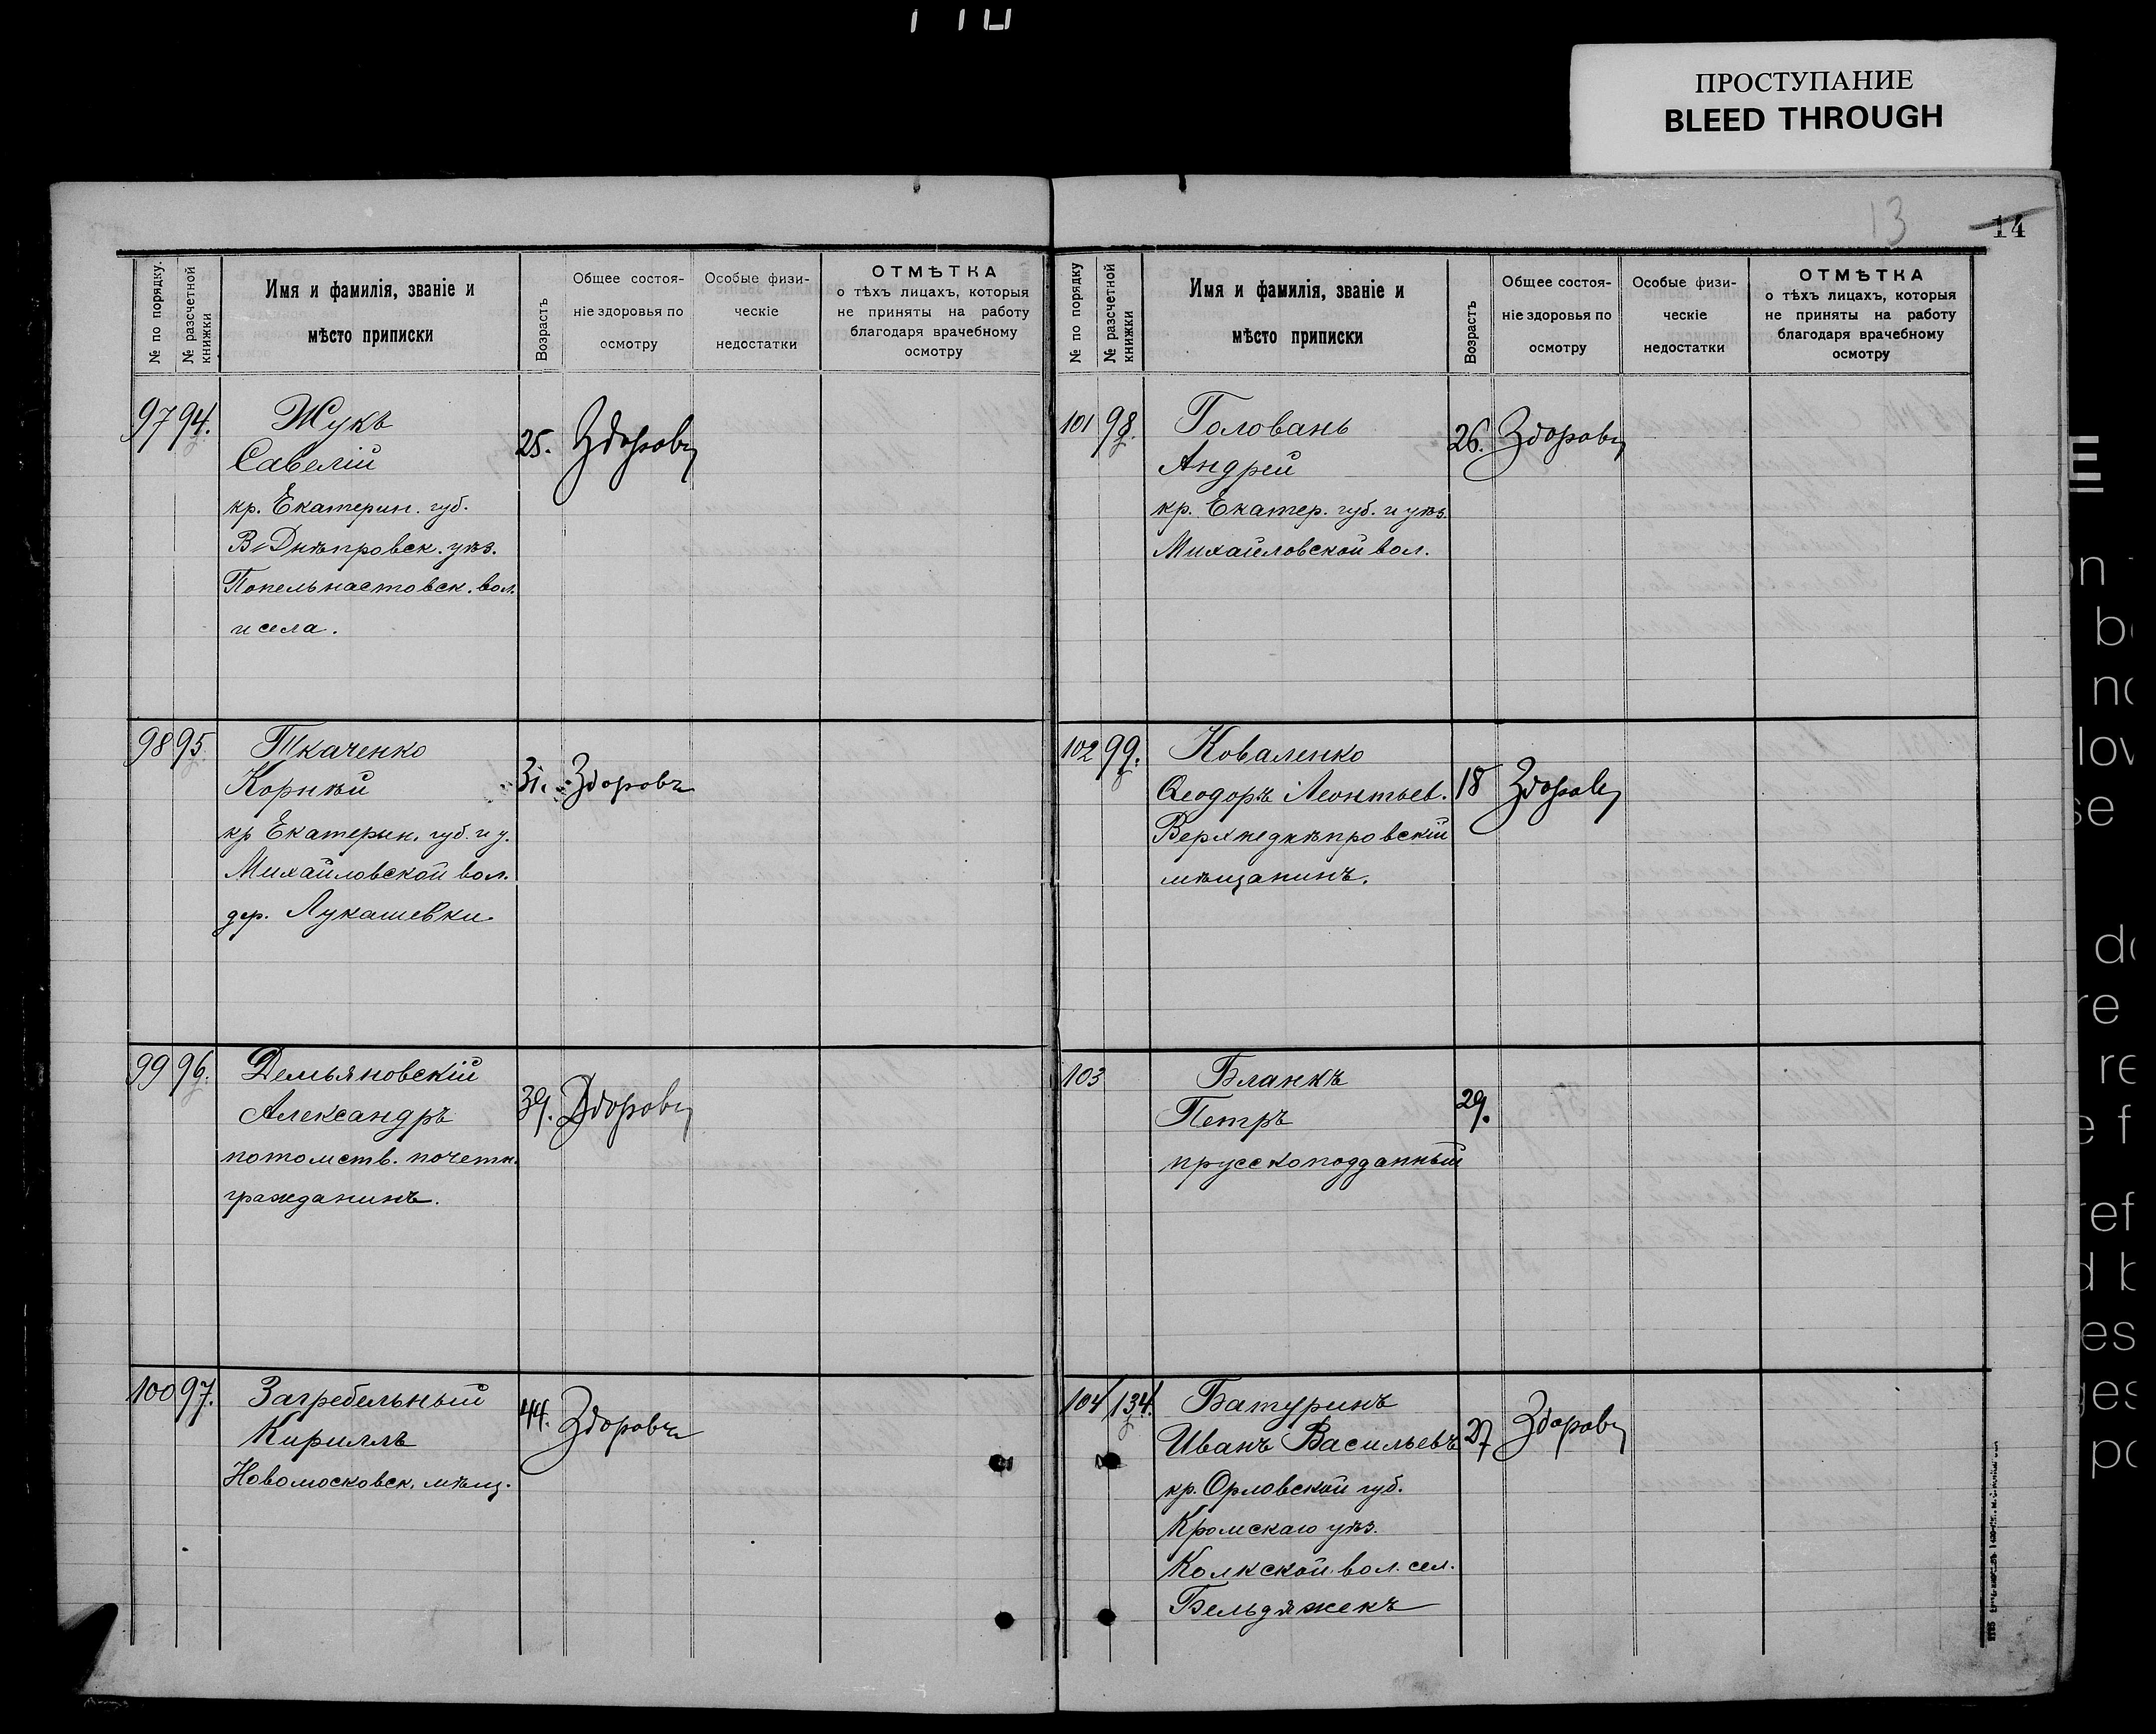 ПРОСТУПАНИЕ
BLEED THROUGH
13
14
№ по порядку.
№ разсчетной книжки
Имя и фамилія, званіе и
мѣсто приписки
Возрастъ
Общее состоя-
ніе здоровья по
осмотру
Особые физи-
ческіе
недостатки
ОТМѢТКА
о тѣхъ лицахъ, которыя
не приняты на работу
благодаря врачебному
осмотру
97 94. Жукъ
Савелій
25. Здоровъ
кр. Екатерин. губ.
В-Днѣпровск. уѣз.
Попельнастовск. вол.
и села.
98 95. Ткаченко
Корнѣй
31. Здоровъ
кр Екатерин. губ. и у.
Михайловской вол.
дер. Лукашевки
99 96. Демьяновскій
Александръ
39. Здоровъ
потомств. почетн.
гражданинъ.
100 97. Загребельный
Кириллъ
44. Здоровъ
Новомосковск. мѣщ.
№ по порядку
№ разсчетной книжки
Имя и фамилія, званіе и
мѣсто приписки
Возрастъ
Общее состоя-
ніе здоровья по
осмотру
Особые физи-
ческіе
недостатки
ОТМѢТКА
о тѣхъ лицахъ, которыя
не приняты на работу
благодаря врачебному
осмотру
101 98. Головань
Андрей
26. Здоровъ
кр. Екатер. губ. и уѣз.
Михайловской вол.
102 99. Коваленко
Ѳеодоръ Леонтьев.
18 Здоровъ
Верхнеднѣпровскій
мѣщанинъ.
103 Бланкъ
Петръ
29.
прусскоподданный
104 134. Батуринъ
Иванъ Васильевъ
27 Здоровъ
кр. Орловской губ.
Кромскаго уѣз.
Колкской вол. сел.
Бельдяжекъ